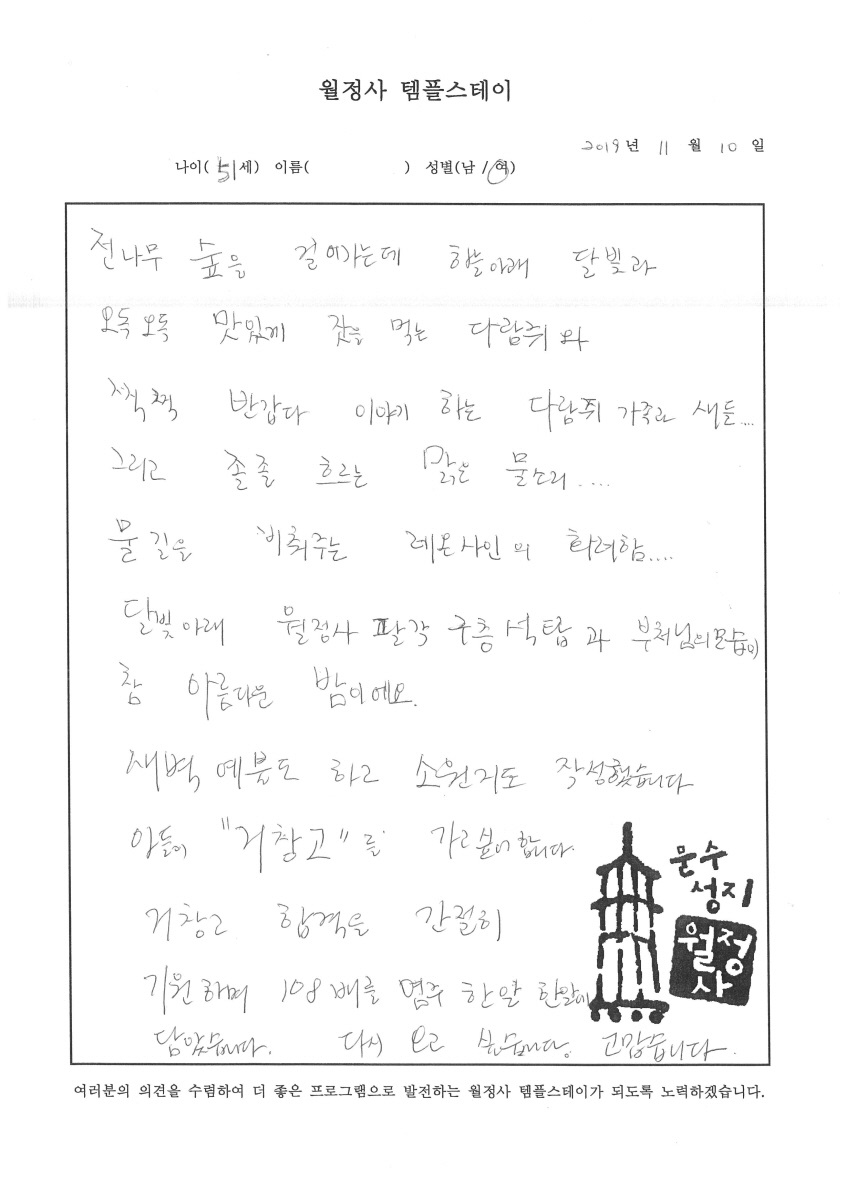 월정사 템플스테이
2019년 11월 10일
나이( 51세) 이름( ) 성별(남 /여)
전나무 숲을 걸어가는데 하늘아래 달빛과
오독오독 맛있게 잣을 먹는 다람쥐와
짹짹 반갑다 이야기 하는 다람쥐 가족과 새들...
그리고 졸졸 흐르는 맑은 물소리....
물길을 비춰주는 레온사인의 화려함....
달빛아래 월정사 팔각 구층석탑과 부처님의모습이
참 아름다운 밤이에요.
새벽 예불도 하고 소원지도 작성했습니다
아들이 "거창고"를 가고싶어합니다.
거창고 합격을 간절히
기원하며 108배를 염주 한알 한알에
담았습니다. 다시 오고 싶습니다. 고맙습니다.
문수
성지
월정
사
여러분의 의견을 수렴하여 더 좋은 프로그램으로 발전하는 월정사 템플스테이가 되도록 노력하겠습니다.